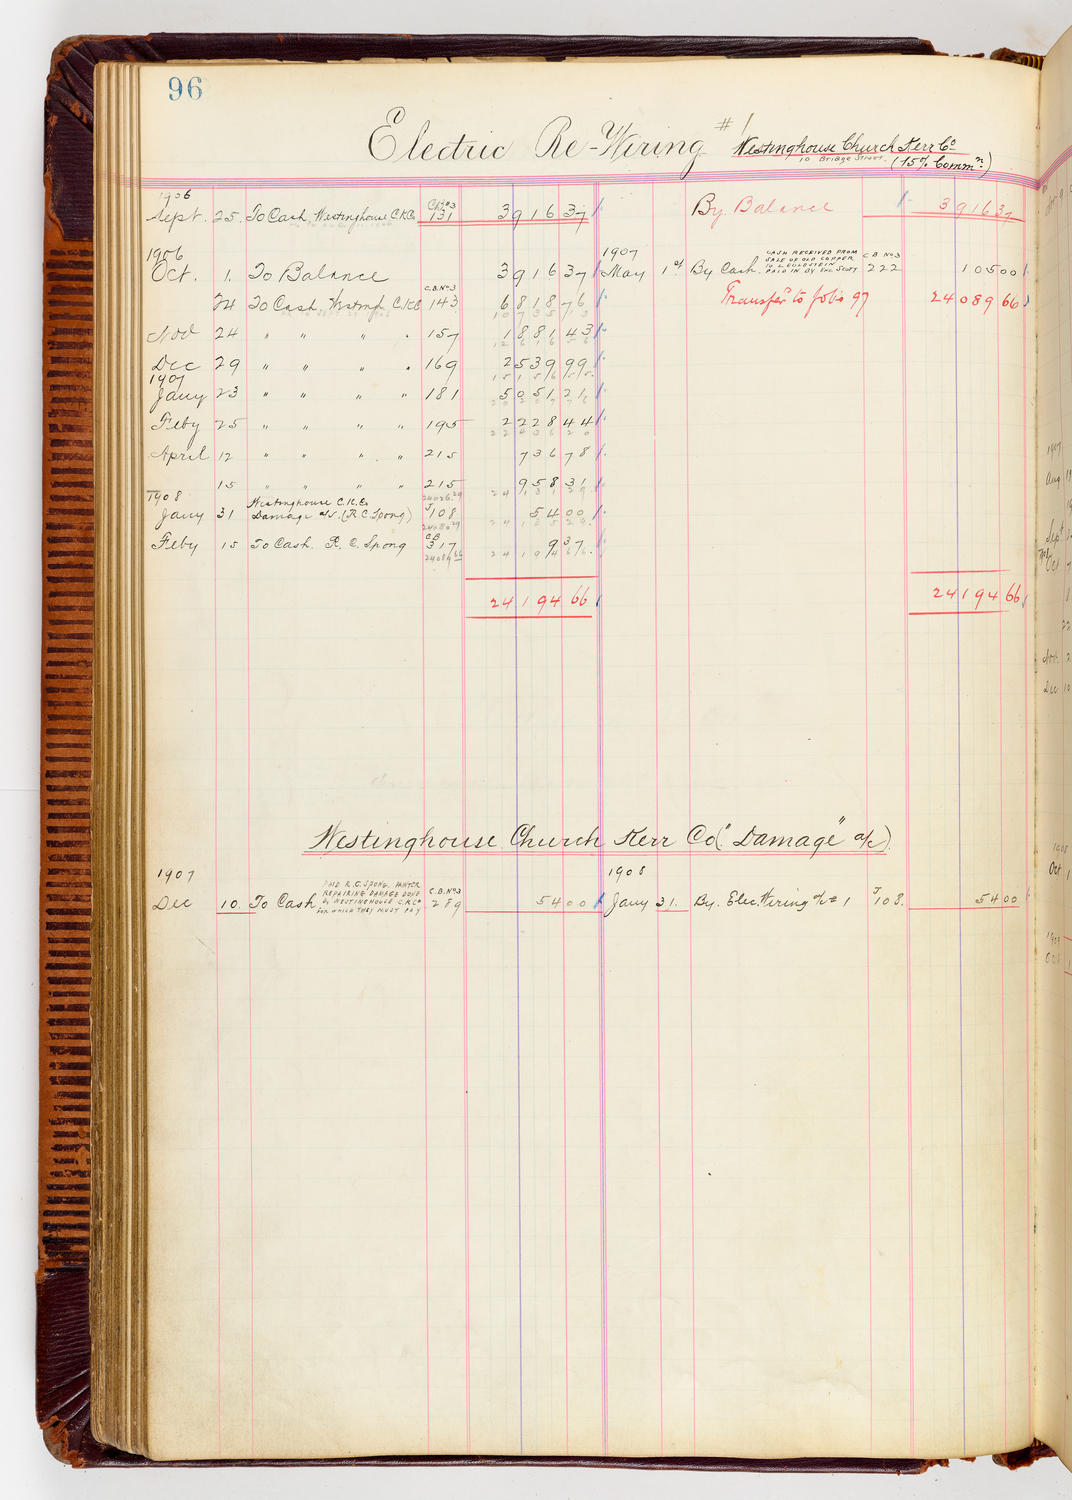 96
Electric Re-Wiring #1 Westinghouse Church Kerr Co
10 Bridge Street. (15% Commn.)
1906
Sept. 25. To Cash, Westinghouse C.K.Co 131 3916 37 By Balance 3916 37
1906 1907
Oct. 1. To Balance 3916 37 May 1st By Cash. CASH RECEIVED FROM SALE OF OLD COPPER PAID IN BY C.B. No3 222 105 00
C.B. No3
24 To Cash Westingh C.K.Co 143 6818 76 Transfer to Jobs 97 24089 66
10735 13
Nov 24 " " " " 157 1881 43
12616 56
Dec 29 " " " " 169 2539 99
1907 15156 55
Jany 23 " " " " 181 5051 21
20207 76
Feby 25 " " " " 195 2228 44
22436 20
April 12 " " " " 215 736 78
15 " " " " 215 958 31
1908 Westinghouse C.K.Co 24026 29 24131 29
Jany 31 Damage a/c. (R.C. Spong) J 108 54 00
24080 29 24185 29
Feby 15 To Cash. R. C. Spong C.B. 317 9 37
24089 66 24194 66
24194 66 24194 66
Westinghouse Church Kerr Co ("Damage" a/c)
1907 1908
Dec 10. To Cash PAID R.C. SPONG, PAINTER REPAIRING DAMAGE DONE BY WESTINGHOUSE C.K.Co FOR WHICH THEY MUST PAY C.B. No3 289 54 00 Jany 31. By. Elec. Wiring a/c #1 J 108. 54 00